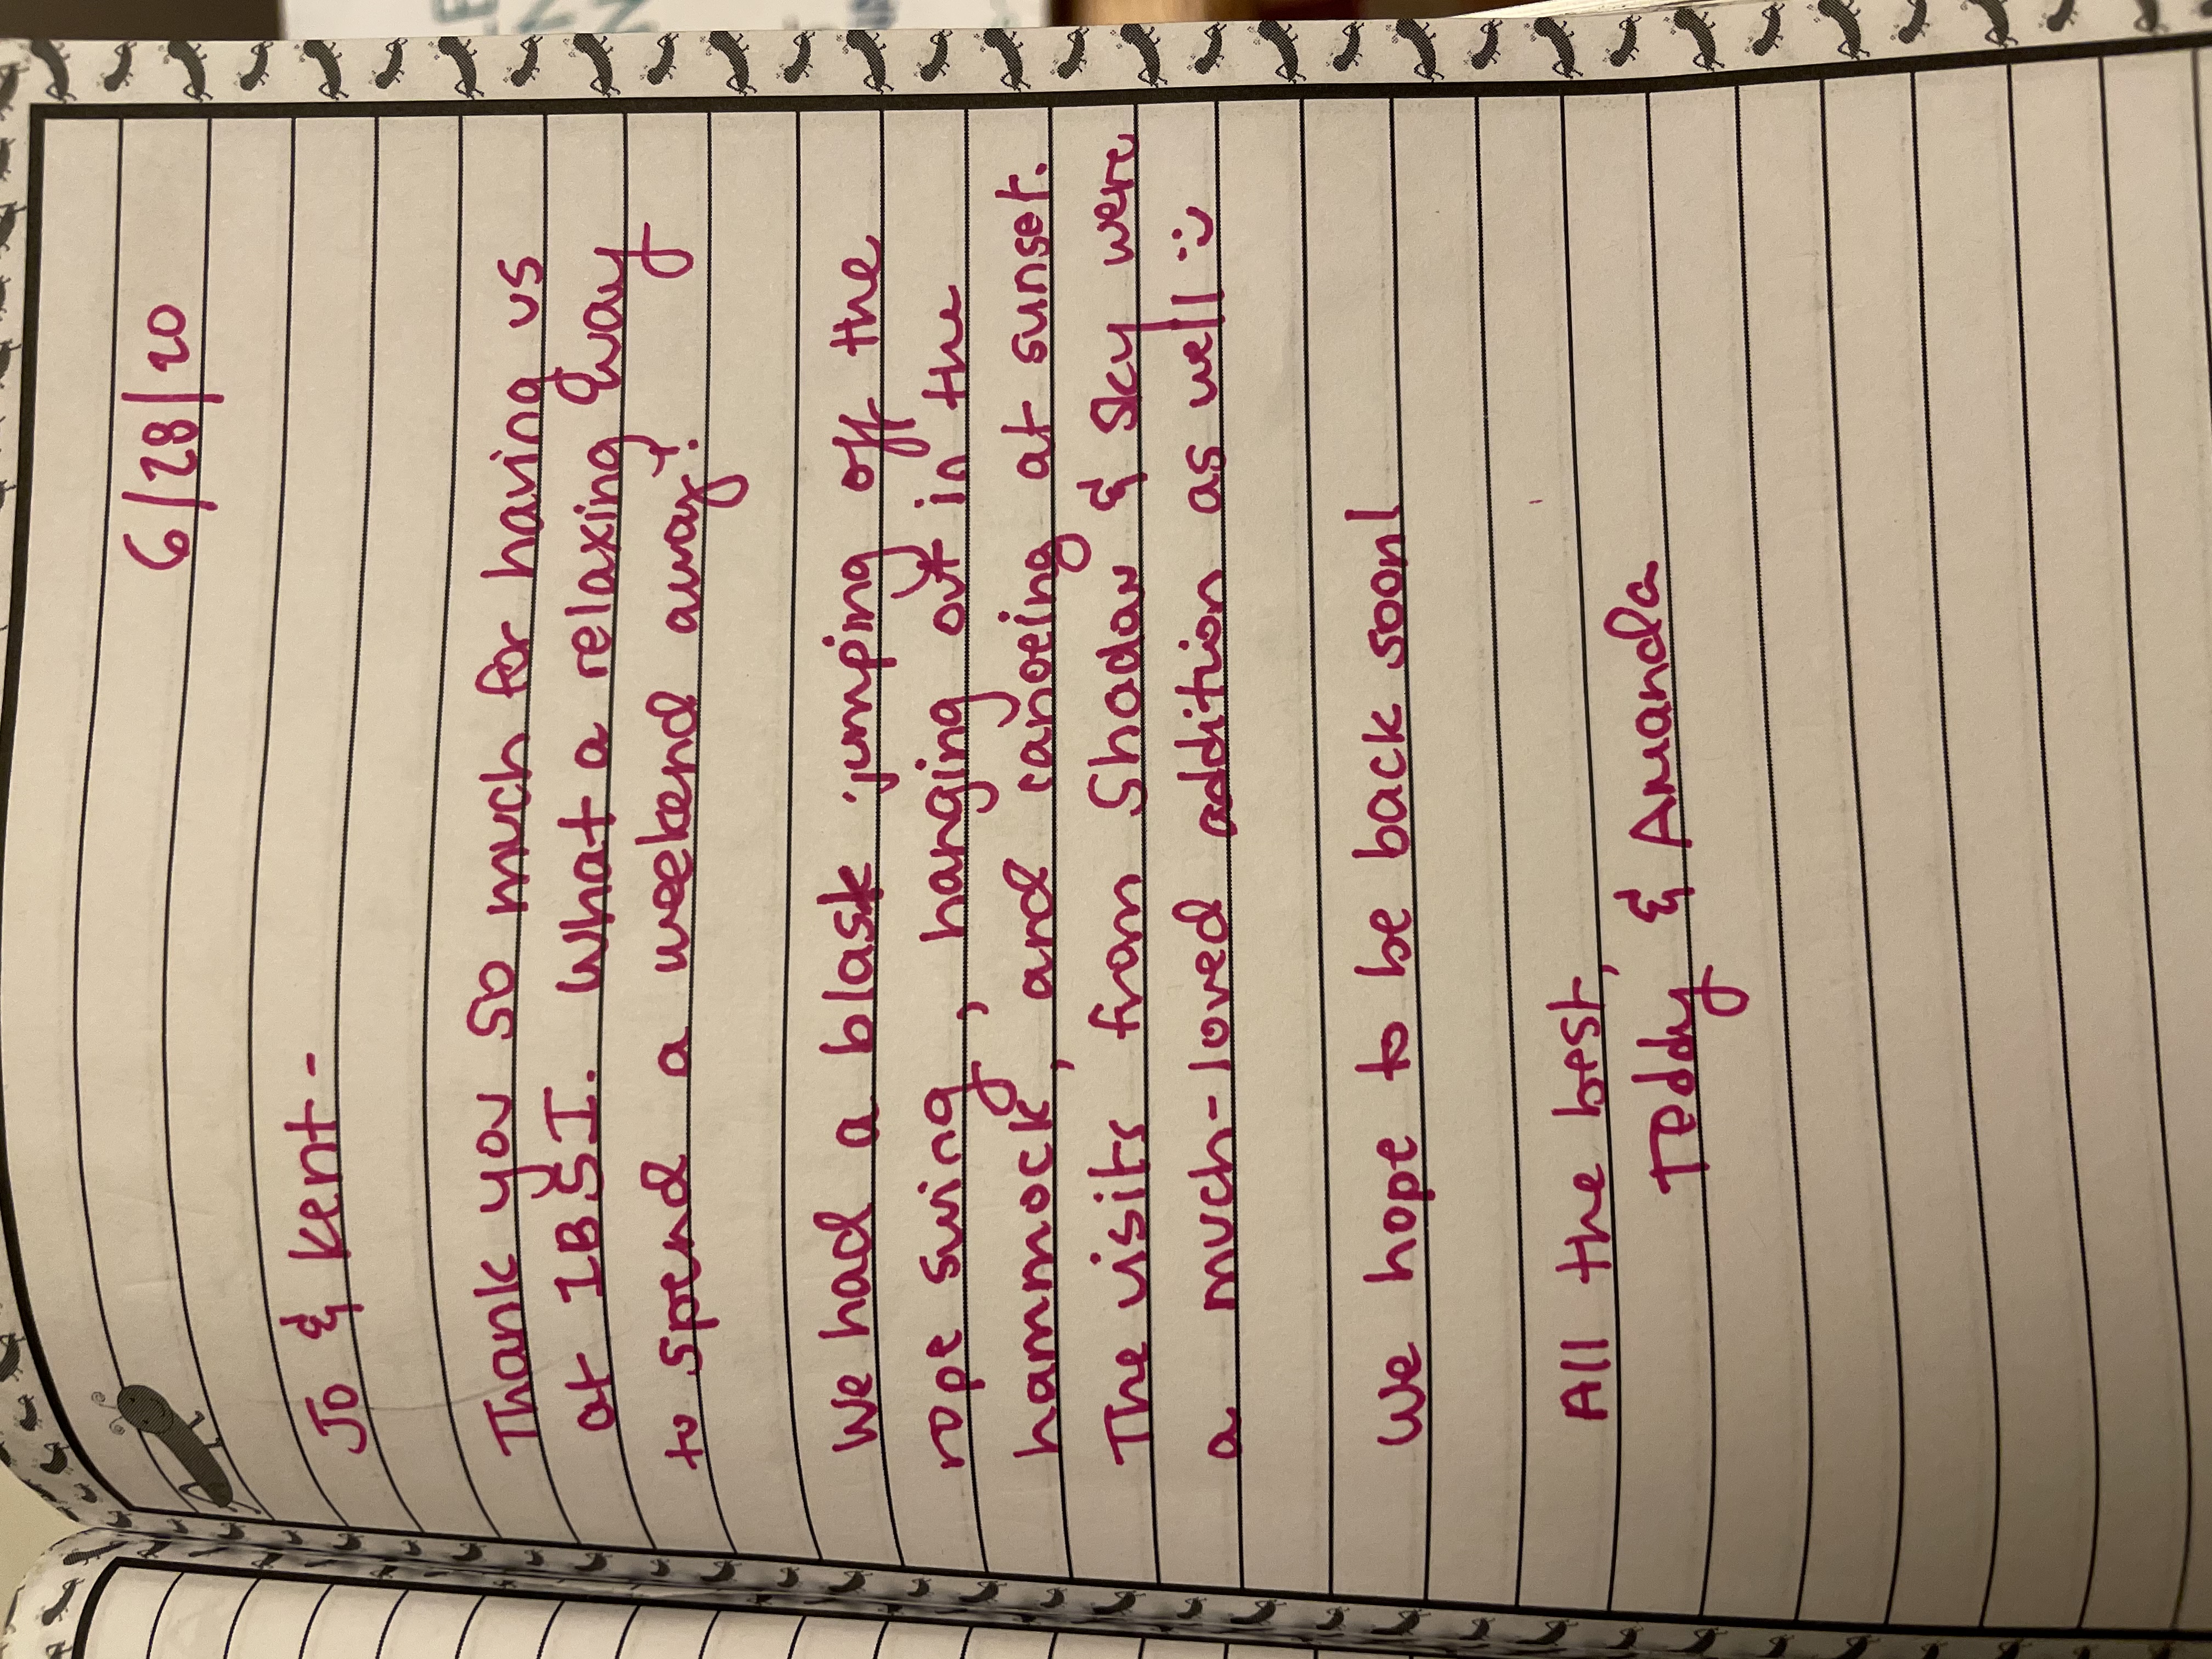 6/28/20
Jo & Kent -
Thank you so much for having us
at IBSI. What a relaxing way
to spend a weekend away!
We had a blast jumping off the
rope swing, hanging out in the
hammock, and canoeing at sunset.
The visits from Shadow & Sky were
a much-loved addition as well :)
We hope to be back soon!
All the best,
Teddy & Amanda